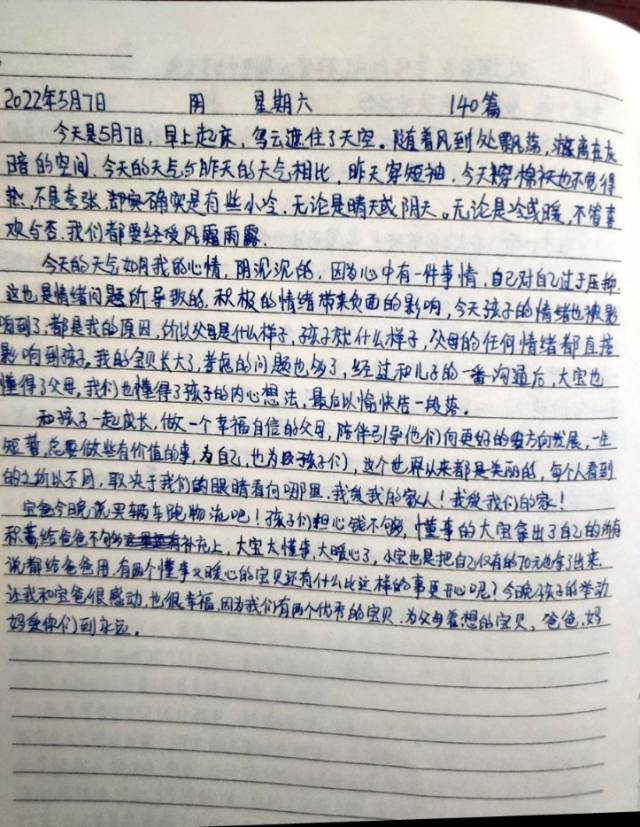 2022年5月7日 阴 星期六 140篇
今天是5月7日,早上起床,乌云遮住了天空。随着风到处飘荡,游离在灰
暗的空间,今天的天气与昨天的天气相比,昨天穿短袖,今天穿棉袄也不觉得
热,不是夸张,都实确实是有些小冷,无论是晴天或阴天。无论是冷或暖,不管喜
欢与否,我们都要经受风霜雨露。
今天的天气如同我的心情,阴沉沉的,因为心中有一件事情,自己对自己过于压抑,
这也是情绪问题所导致的,积极的情绪带来负面的影响,今天孩子的情绪也被影
响到了,都是我的原因,所以父母是什么样子,孩子就什么样子,父母的任何情绪都直接
影响到孩子,我的宝贝长大了,考虑的问题也多了,经过和儿子的一番沟通后,大宝也
懂得了父母,我们也懂得了孩子的内心想法,最后以愉快告一段落。
和孩子一起成长,做一个幸福自信的父母,陪伴引导他们向更好的方向发展,一生
短暂,总要做些有价值的事,为自己,也为孩子们,这个世界从来都是美丽的,每个人看到
的之所以不同,取决于我们的眼睛看向哪里,我爱我的家人!我爱我们的家!
宝爸今晚说买辆车跑物流吧!孩子们担心钱不够,懂事的大宝拿出了自己的所有
积蓄给爸爸不够补充上,大宝太懂事,大暖心了,小宝也是把自己仅有的70元也拿了出来,
说都给爸爸用,有两个懂事又暖心的宝贝还有什么比这样的事更开心呢?今晚孩子的举动
让我和宝爸很感动,也很幸福,因为我们有两个优秀的宝贝,为父母着想的宝贝,爸爸,妈
妈爱你们到永远。